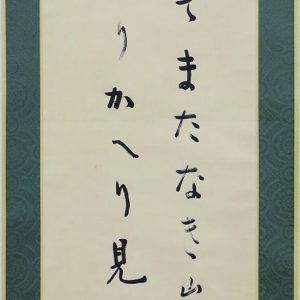 てまたなき山
りかへり見